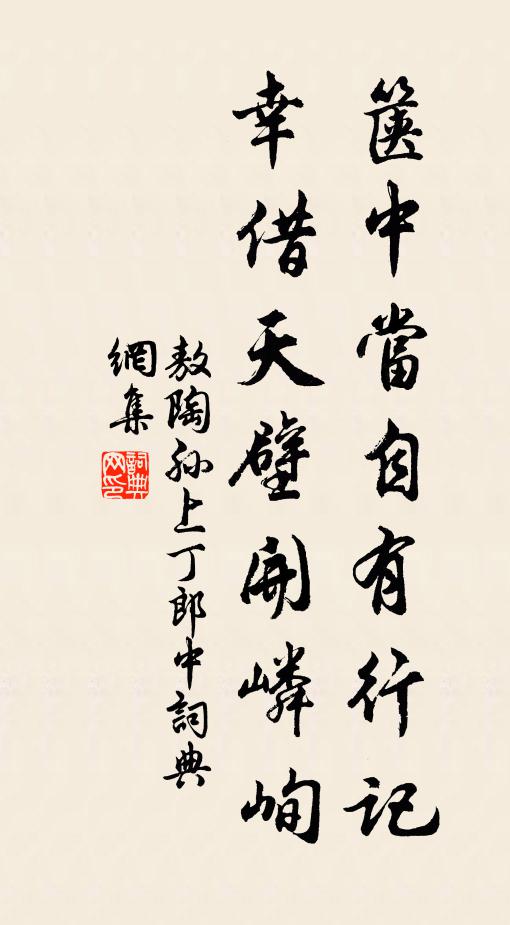 篋中當自有行記
幸借天壁開嶙峋
敖陶孙上丁郎中詞典
網集
詞典网印